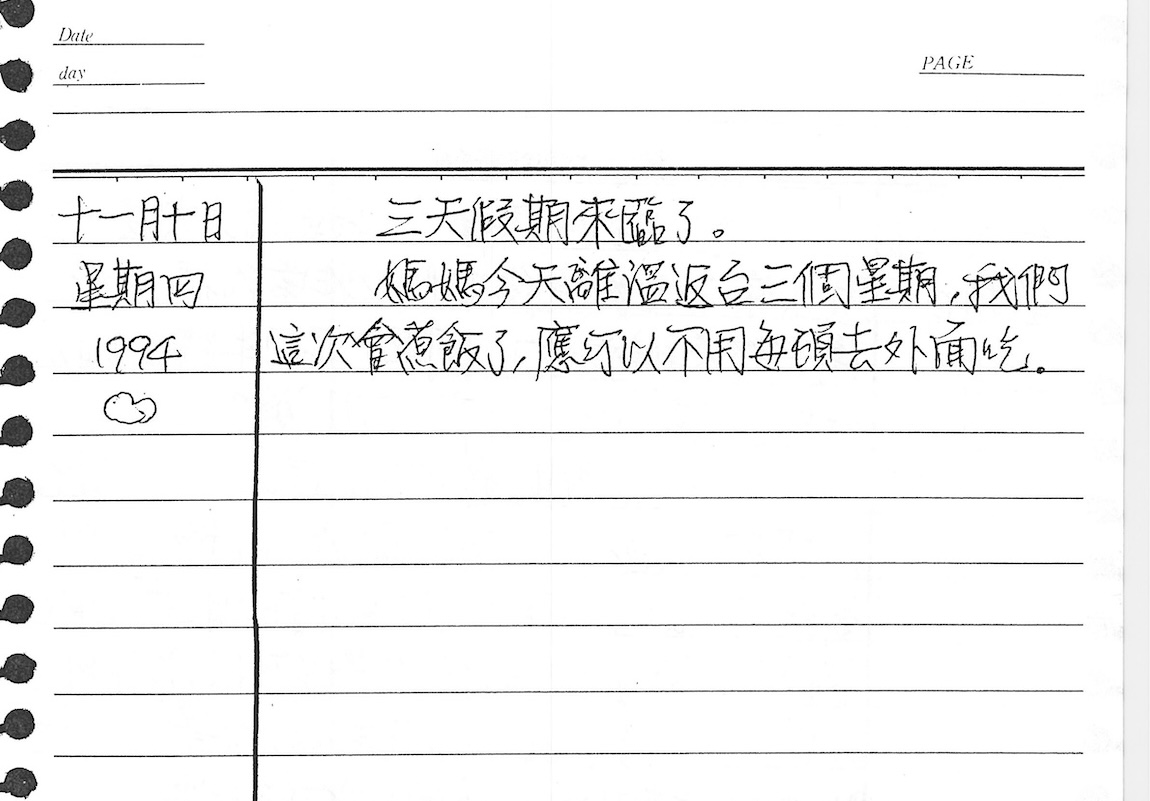 Date
day
PAGE
十一月十日
星期四
1994
三天假期來臨了。
媽媽今天離溫返台三個星期,我們
這次會煮飯了,應可以不用每頓去外面吃.